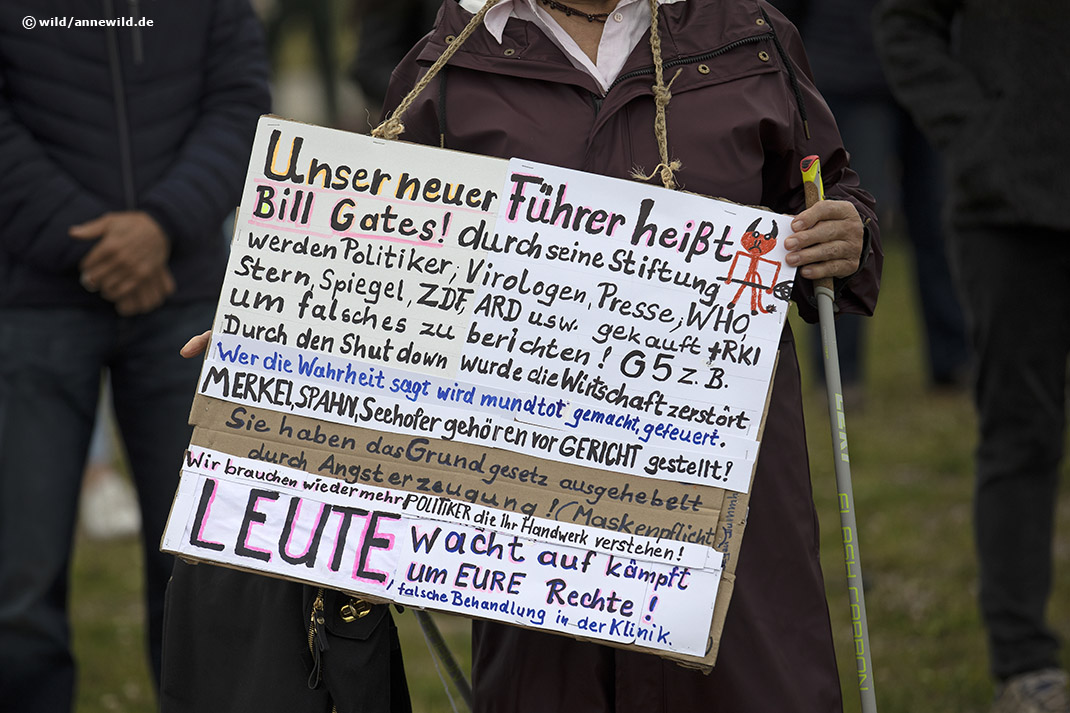 © wild/annewild.de
Unser neuer Führer heißt
Bill Gates! durch seine Stiftung
werden Politiker, Virologen, Presse, WHO,
Stern, Spiegel, ZDF, ARD usw. gekauft +RKI
um falsches zu berichten! G5 z.B.
Durch den Shut down wurde die Wirtschaft zerstört
Wer die Wahrheit sagt wird mundtot gemacht, gefeuert.
MERKEL, SPAHN, Seehofer gehören vor GERICHT gestellt!
Sie haben das Grundgesetz ausgehebelt
durch Angsterzeugung! (Maskenpflicht)
Wir brauchen wieder mehr POLITIKER die Ihr Handwerk verstehen!
LEUTE wacht auf kämpft
um EURE Rechte!
, falsche Behandlung in der Klinik.
FLASH CARBON